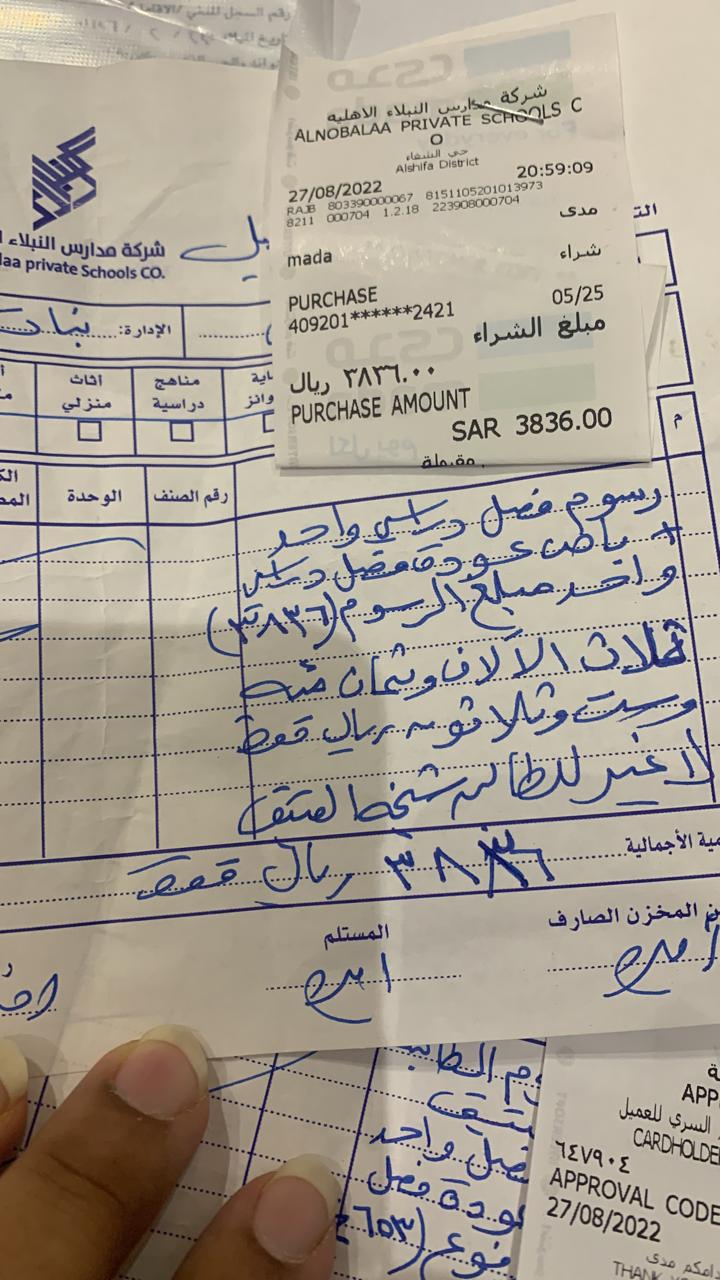 رقم السجل
شركة مدارس النبلاء الاهليه
ALNOBALAA PRIVATE SCHOOLS C
O
حي الشفاء
Alshifa District
27/08/2022 20:59:09
RAJB 803390000067 8151105201013973
8211 000704 1.2.18 223908000704
مدى
mada
شراء
PURCHASE
409201******2421 05/25
مبلغ الشراء
٣٨٣٦.٠٠ ريال
PURCHASE AMOUNT
SAR 3836.00
مقبولة
شركة مدارس النبلاء
laa private Schools CO.
الإدارة: بنات
مناهج دراسية
أثاث منزلي
م
رقم الصنف
الوحدة
رسوم فصل دراسي واحد
+ باص عودة فصل دراسي
واحد مبلغ الرسوم (٣٨٣٦)
ثلاث الآلاف وثمان مئه
وست وثلاثون ريال فقط
لا غير للطالبه
الأجمالية
٣٨٣٦ ريال فقط
المخزن الصارف
المستلم
فصل واحد
عودة فصل
APP
السري للعميل
CARDHOLDE
٦٤٧٩٠٤
APPROVAL CODE
27/08/2022
مدى
THANK